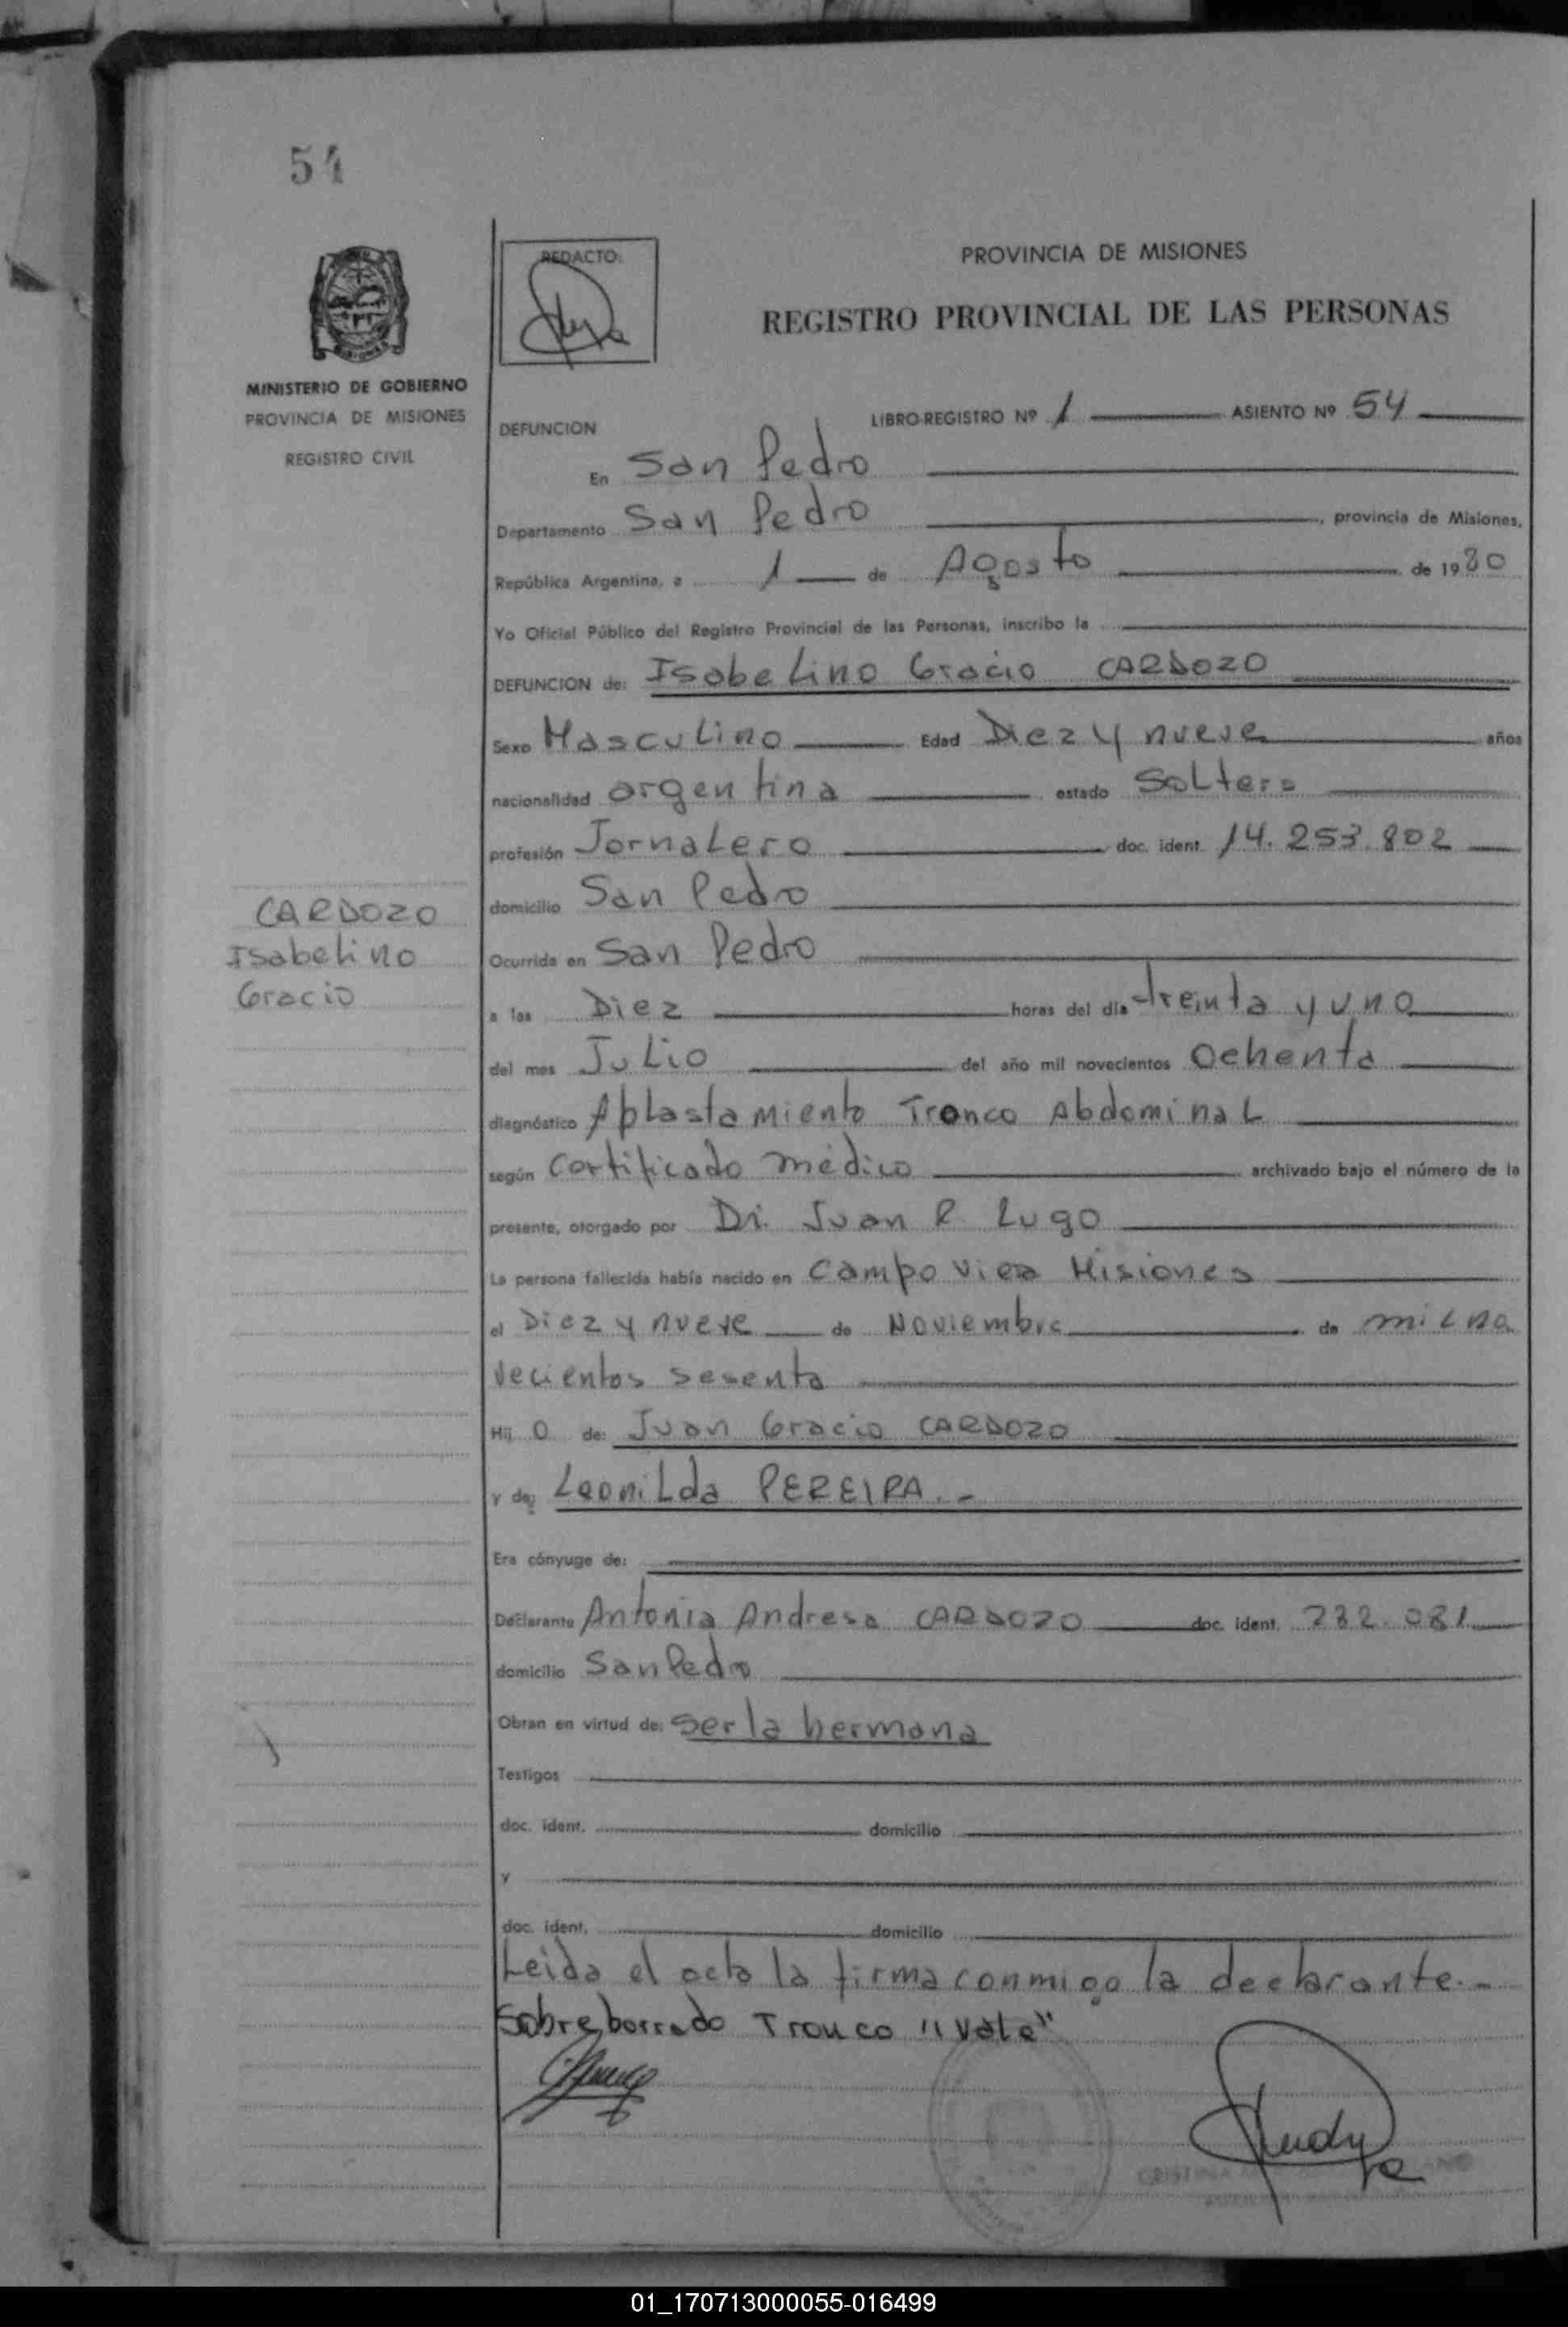 54
MINISTERIO DE GOBIERNO
PROVINCIA DE MISIONES
REGISTRO CIVIL
CARDOZO
Isabelino
Gracio
REDACTO:
PROVINCIA DE MISIONES
REGISTRO PROVINCIAL DE LAS PERSONAS
DEFUNCION LIBRO-REGISTRO Nº 1 ASIENTO Nº 54
En San Pedro
Departamento San Pedro, provincia de Misiones,
República Argentina, a 1 de Agosto de 1980
Yo Oficial Público del Registro Provincial de las Personas, inscribo la
DEFUNCION de: Isabelino Gracio CARDOZO
Sexo Masculino Edad Diez y nueve años
nacionalidad argentina estado Soltero
profesión Jornalero doc. ident. 14.253.802
domicilio San Pedro
Ocurrida en San Pedro
a las Diez horas del día treinta y uno
del mes Julio del año mil novecientos Ochenta
diagnóstico Aplastamiento Tronco Abdominal
según Certificado médico archivado bajo el número de la
presente, otorgado por Dr. Juan R. Lugo
La persona fallecida había nacido en Campo Viera Misiones
el Diez y nueve de Noviembre de mil no
vecientos sesenta
Hij o de: Juan Gracio CARDOZO
y de: Leonilda PEREIRA.-
Era cónyuge de:
Declarante Antonia Andresa CARDOZO doc. ident. 232.081
domicilio San Pedro
Obran en virtud de: ser la hermana
Testigos
doc. ident. domicilio
y
doc. ident. domicilio
Leida el acta la firma conmigo la declarante.-
Sobre borrado Tronco "Vale"
CRISTINA
01_170713000055-016499